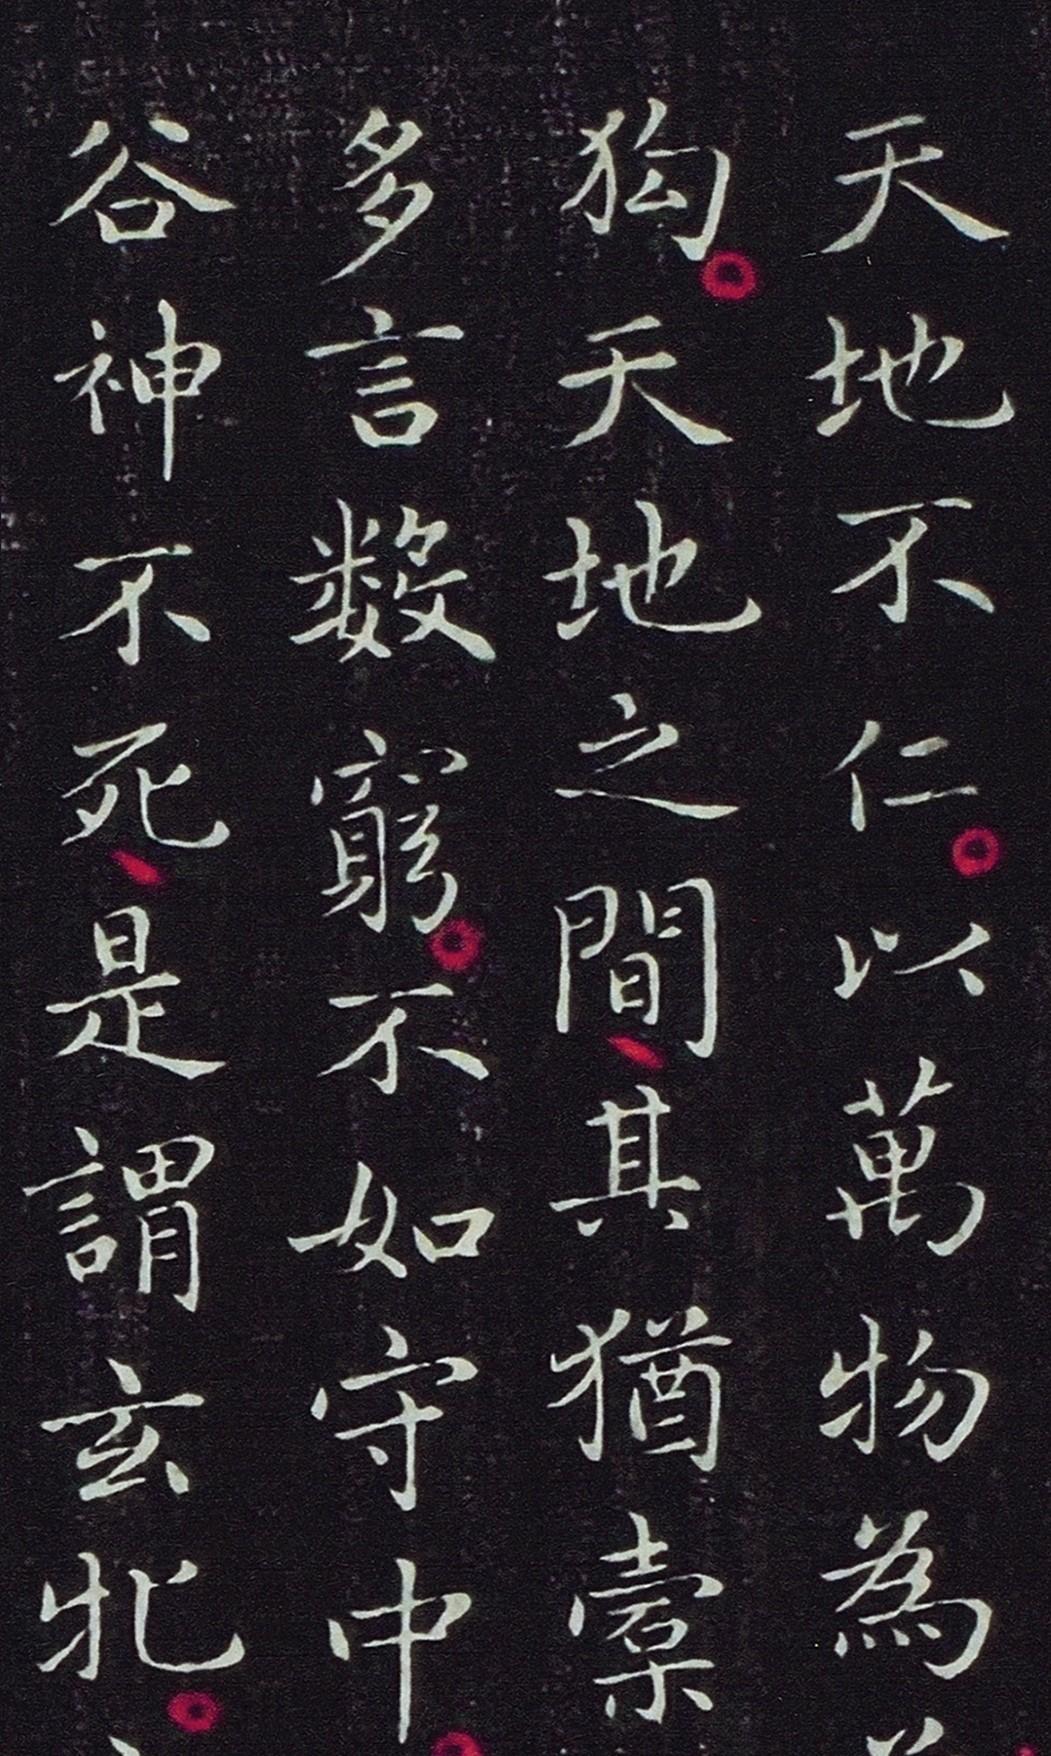 天地不仁。以萬物為
狗。天地之間、其猶橐
多言數窮。不如守中。
谷神不死、是謂玄牝。